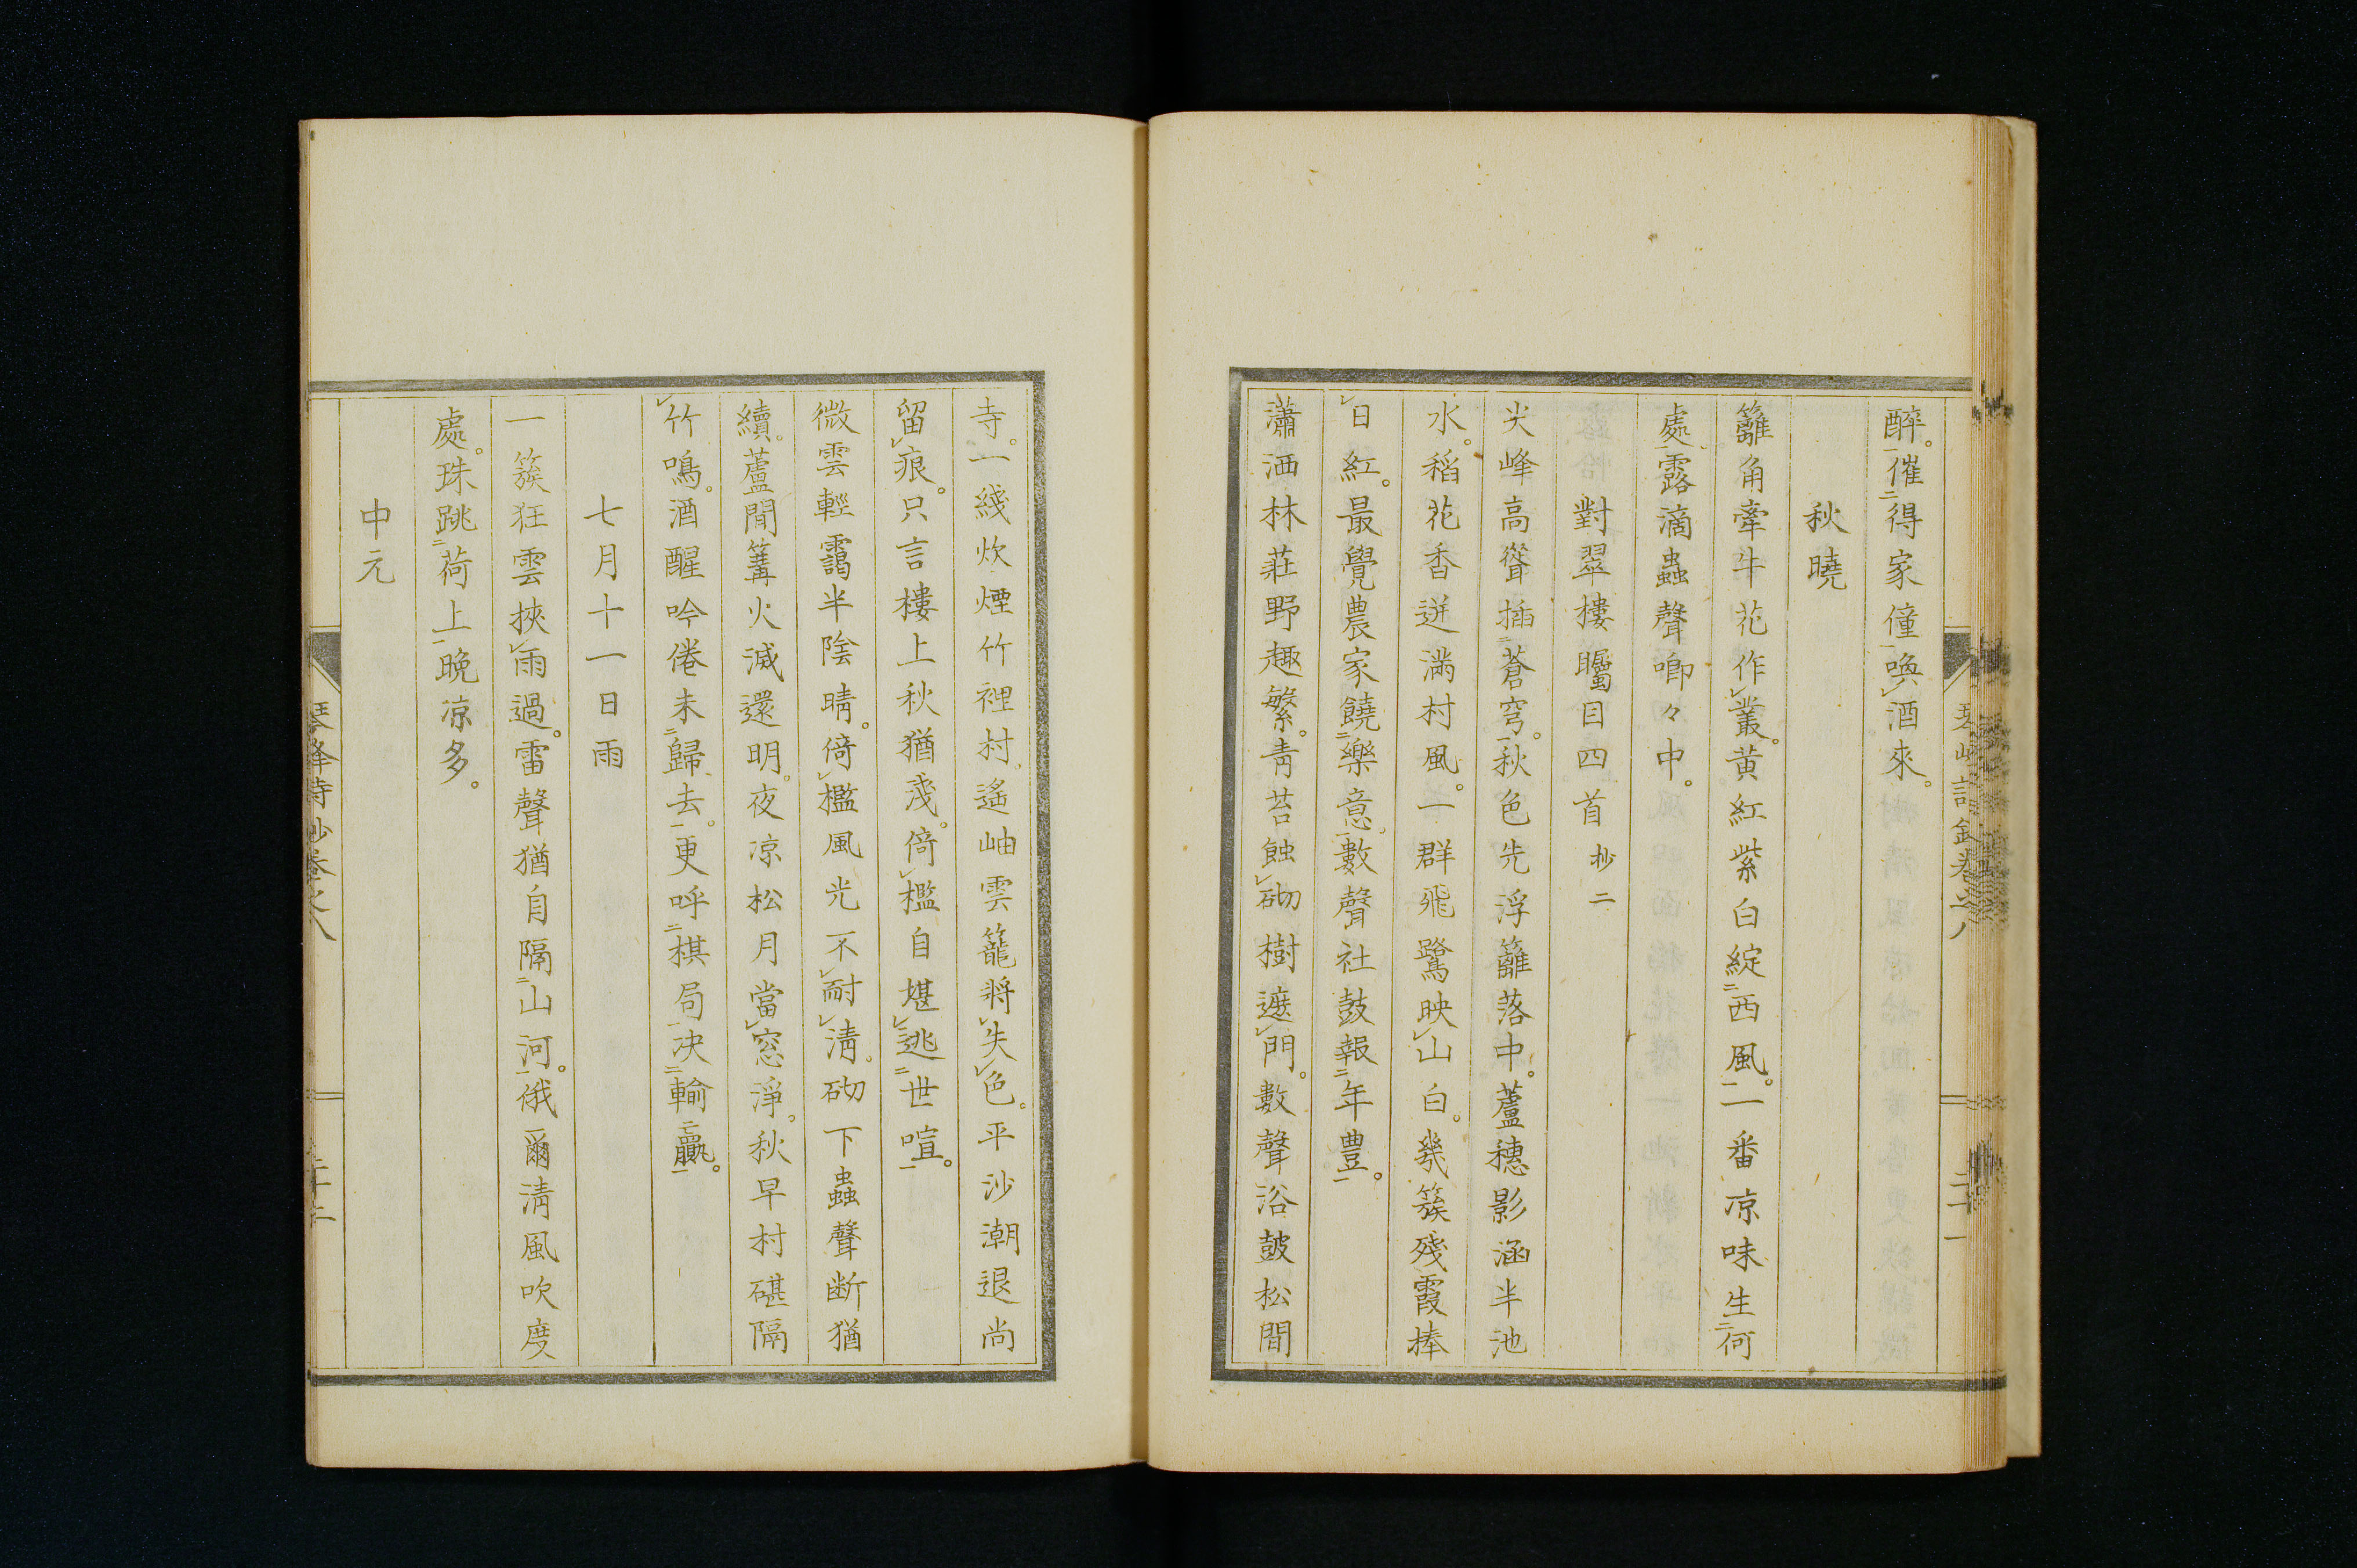 醉。催得家僮喚酒來。
秋曉
籬角牽牛花作叢。黄紅紫白綻西風。一番凉味生何
處、露滴蟲聲喞々中。
對翠樓矚目四首 抄二
尖峰高聳插蒼穹。秋色先浮籬落中。蘆穗影涵半池
水。稻花香迸滿村風。一群飛鷺映山白。幾簇殘霞捧
日紅。最覺農家饒樂意、數聲社鼓報年豊。
瀟洒林莊野趣繁。青苔蝕砌樹遮門。數聲浴皷松間
寺。一綫炊煙竹裡村、遙岫雲籠將失色。平沙潮退尚
留痕。只言樓上秋猶淺。倚檻自堪逃世喧。
微雲輕靄半陰晴。倚檻風光不耐清。砌下蟲聲断猶
續。蘆間篝火滅還明。夜凉松月當窓淨。秋早村碪隔
竹鳴。酒醒吟倦未歸去。更呼棋局决輸贏。
七月十一日雨
一簇狂雲挾雨過。雷聲猶自隔山河。俄爾淸風吹度
處。珠跳荷上晚凉多。
中元
琴峰詩鈔卷之八
二十一
琴峰詩鈔卷之八
二十二